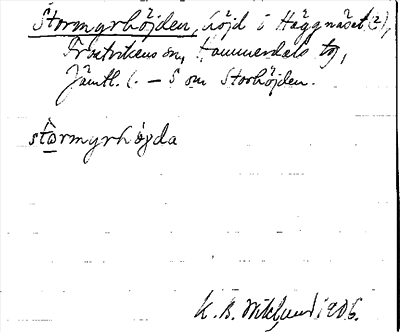 Stormyrhöjden, höjd i Häggnäset (2),
Frostvikens sn, Hammerdals tg,
Jämtl. l. – S om Storhöjden.
stòrmyrhøyda
K. B. Wiklund 1906.